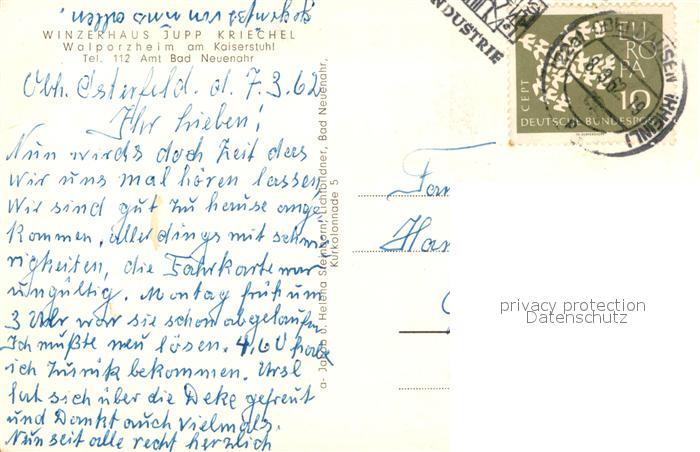 WINZERHAUS JUPP KRIECHEL
Walporzheim am Kaiserstuhl
Tel. 112 Amt Bad Neuenahr
Obh. Osterfeld. d. 7.3.62
Ihr Lieben!
Nun wirds doch Zeit das
wir uns mal hören lassen,
Wir sind gut zu hause ange
kommen, aller dings mit schwie
rigkeiten, die Fahrkarte war
ungültig. Montag früh um
3 Uhr war sie schon abgelaufen
Ich mußte neu lösen. 4.60 habe
ich zurük bekommen. Ursl
hat sich über die Deke gefreut
und Dankt auch vielmals.
Nun seit alle recht herzlich
gegrüßt von
a- Jakob u. Helena Steinborn, Lichtbildner, Bad Neuenahr,
Kurkolonnade 5
INDUSTRIE
EUROPA
CEPT
10
DEUTSCHE BUNDESPOST
OBERHAUSEN (RHEINL)
Fam
Han
privacy protection
Datenschutz